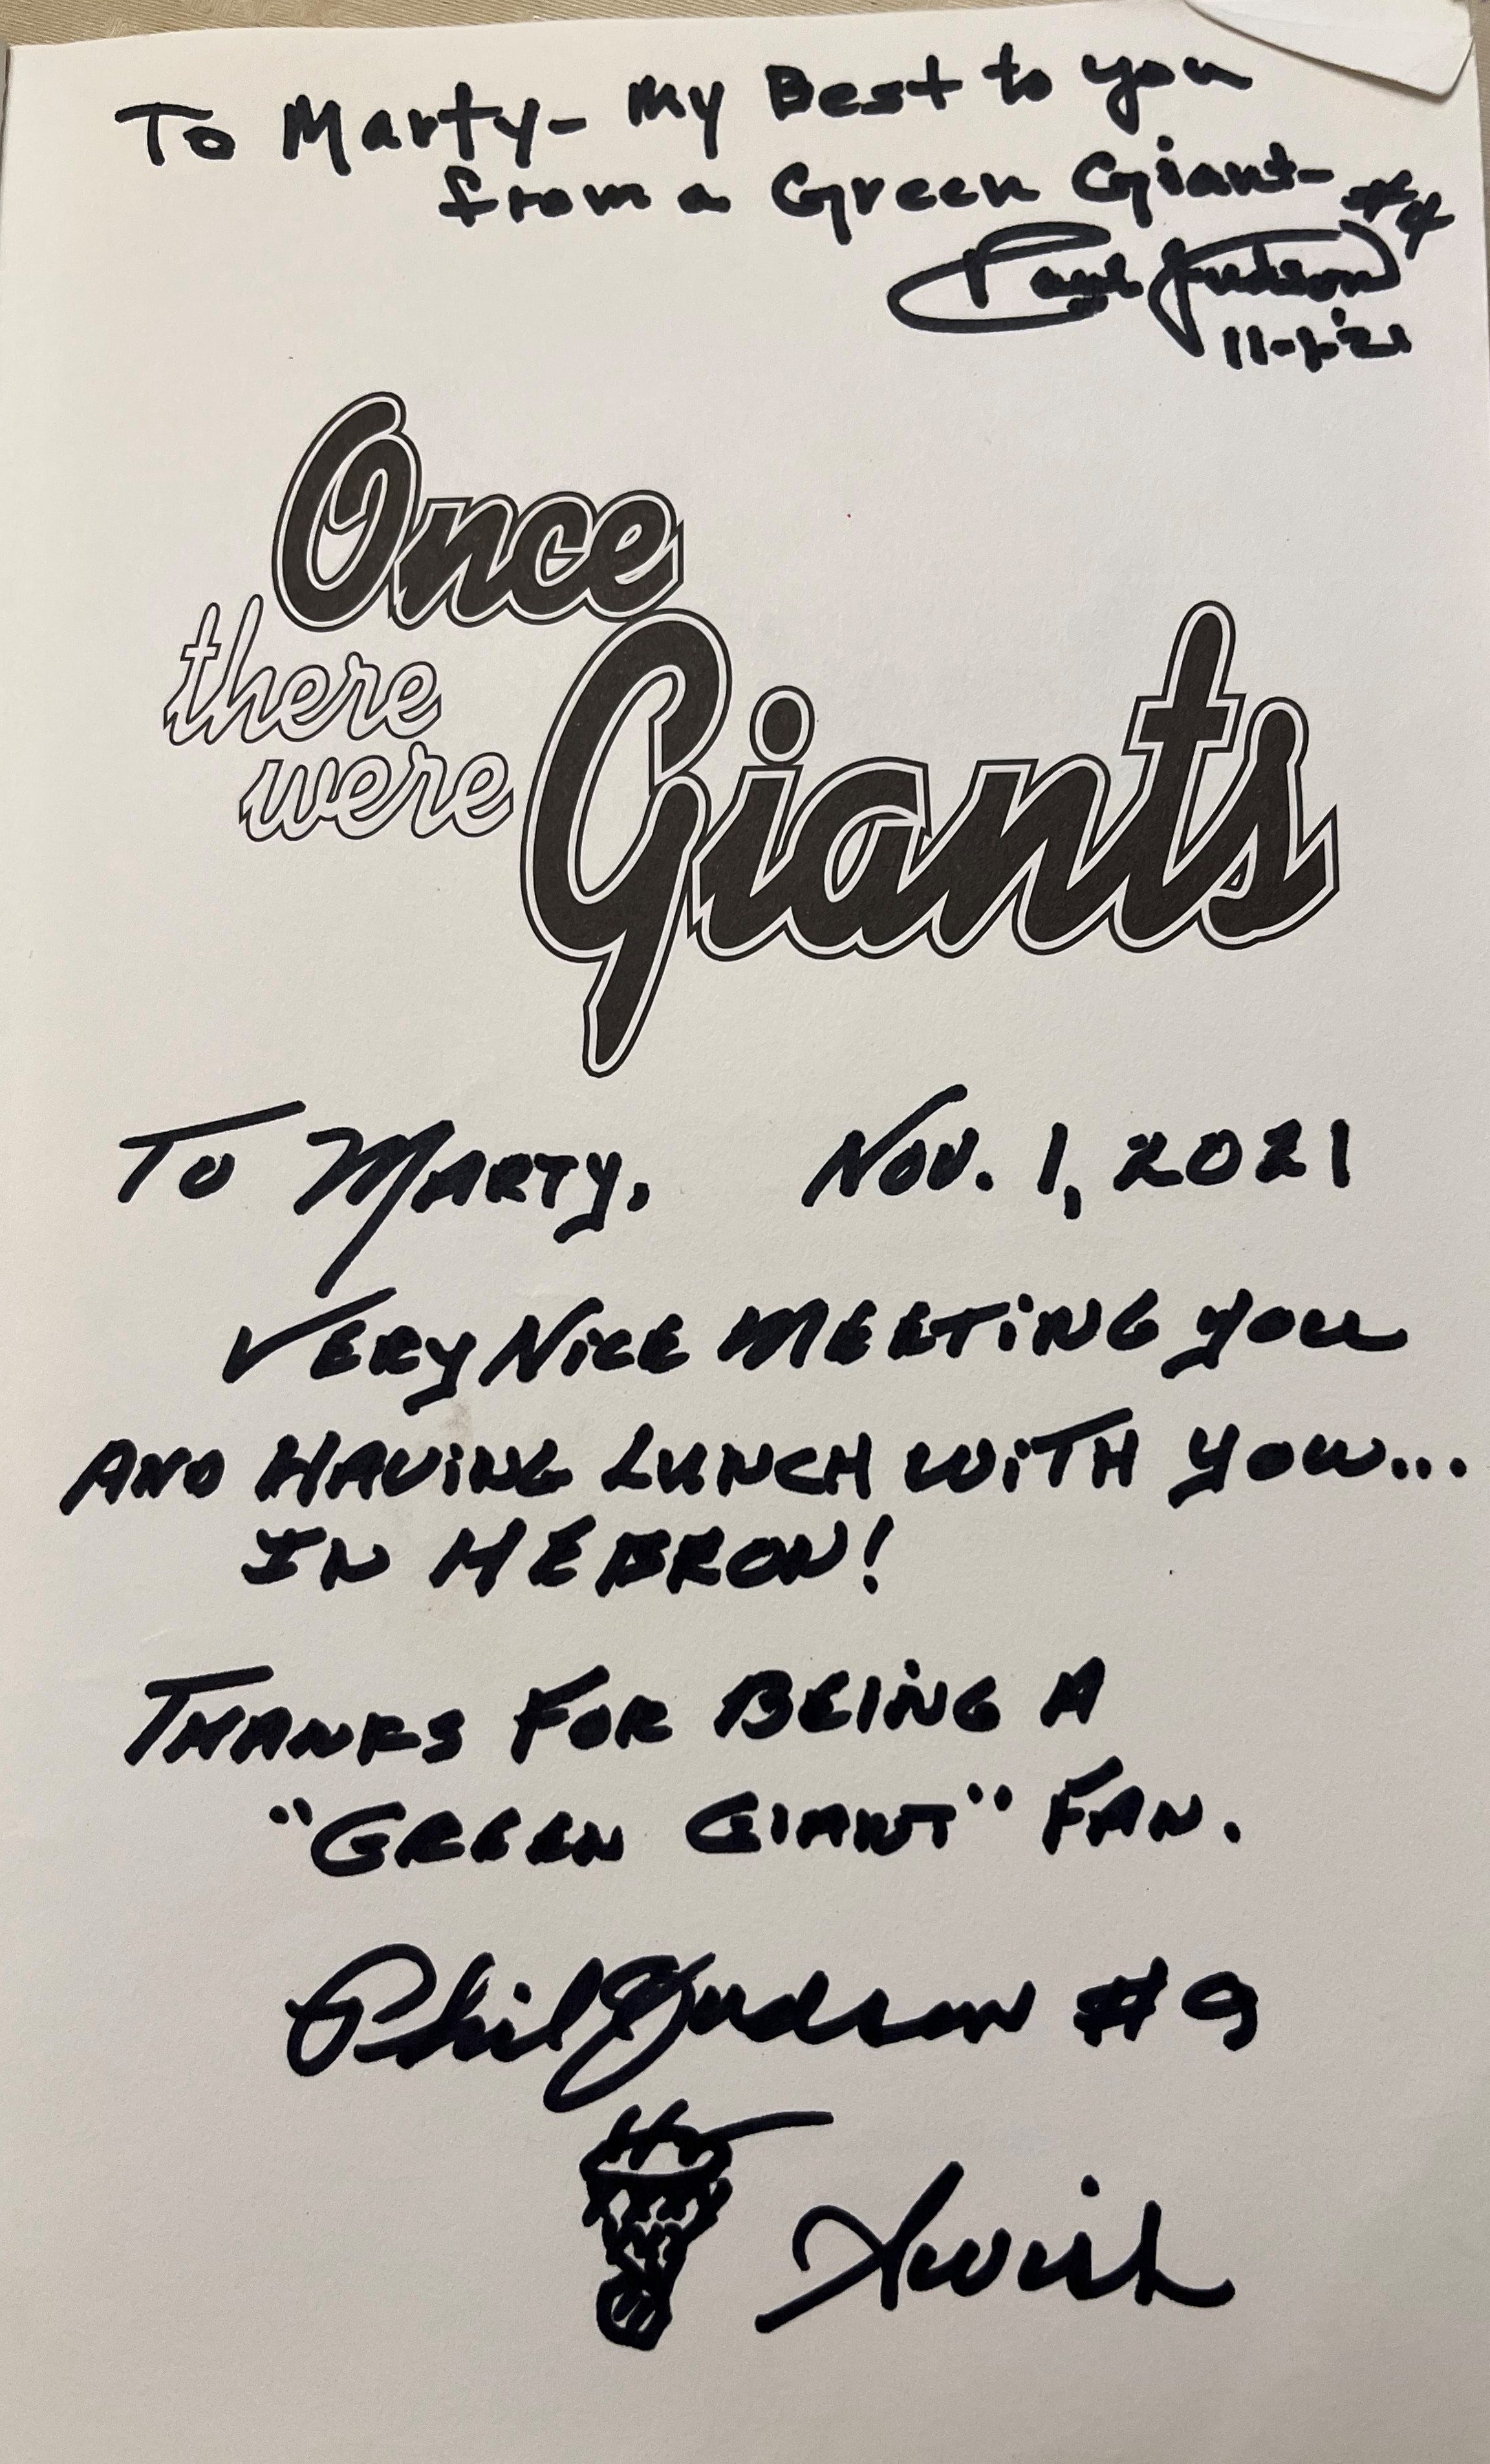 To Marty- My Best to you
from a Green Giant- #4
Paul Judson
11-1-'21
Once
there
were
Giants
To Marty, Nov. 1, 2021
VERY NICE MEETiNG you
AND HAViNG LUNCH WiTH you...
IN HEBRON!
THANKS FOR BEiNG A
"GREEN GIANT" FAN.
Phil Judson #9
Swish